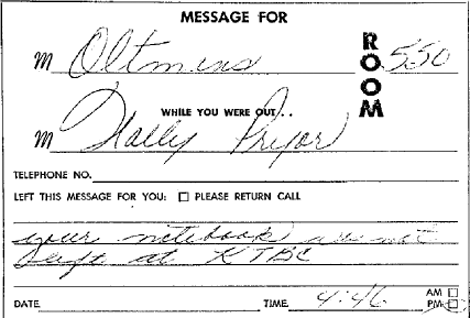 MESSAGE FOR
M Oltmans ROOM 550
WHILE YOU WERE OUT..
M Wally Pryor
TELEPHONE NO.
LEFT THIS MESSAGE FOR YOU: ☐ PLEASE RETURN CALL
your notebooks are not
kept at KTBC
DATE TIME 4:46 AM ☐
PM ☐